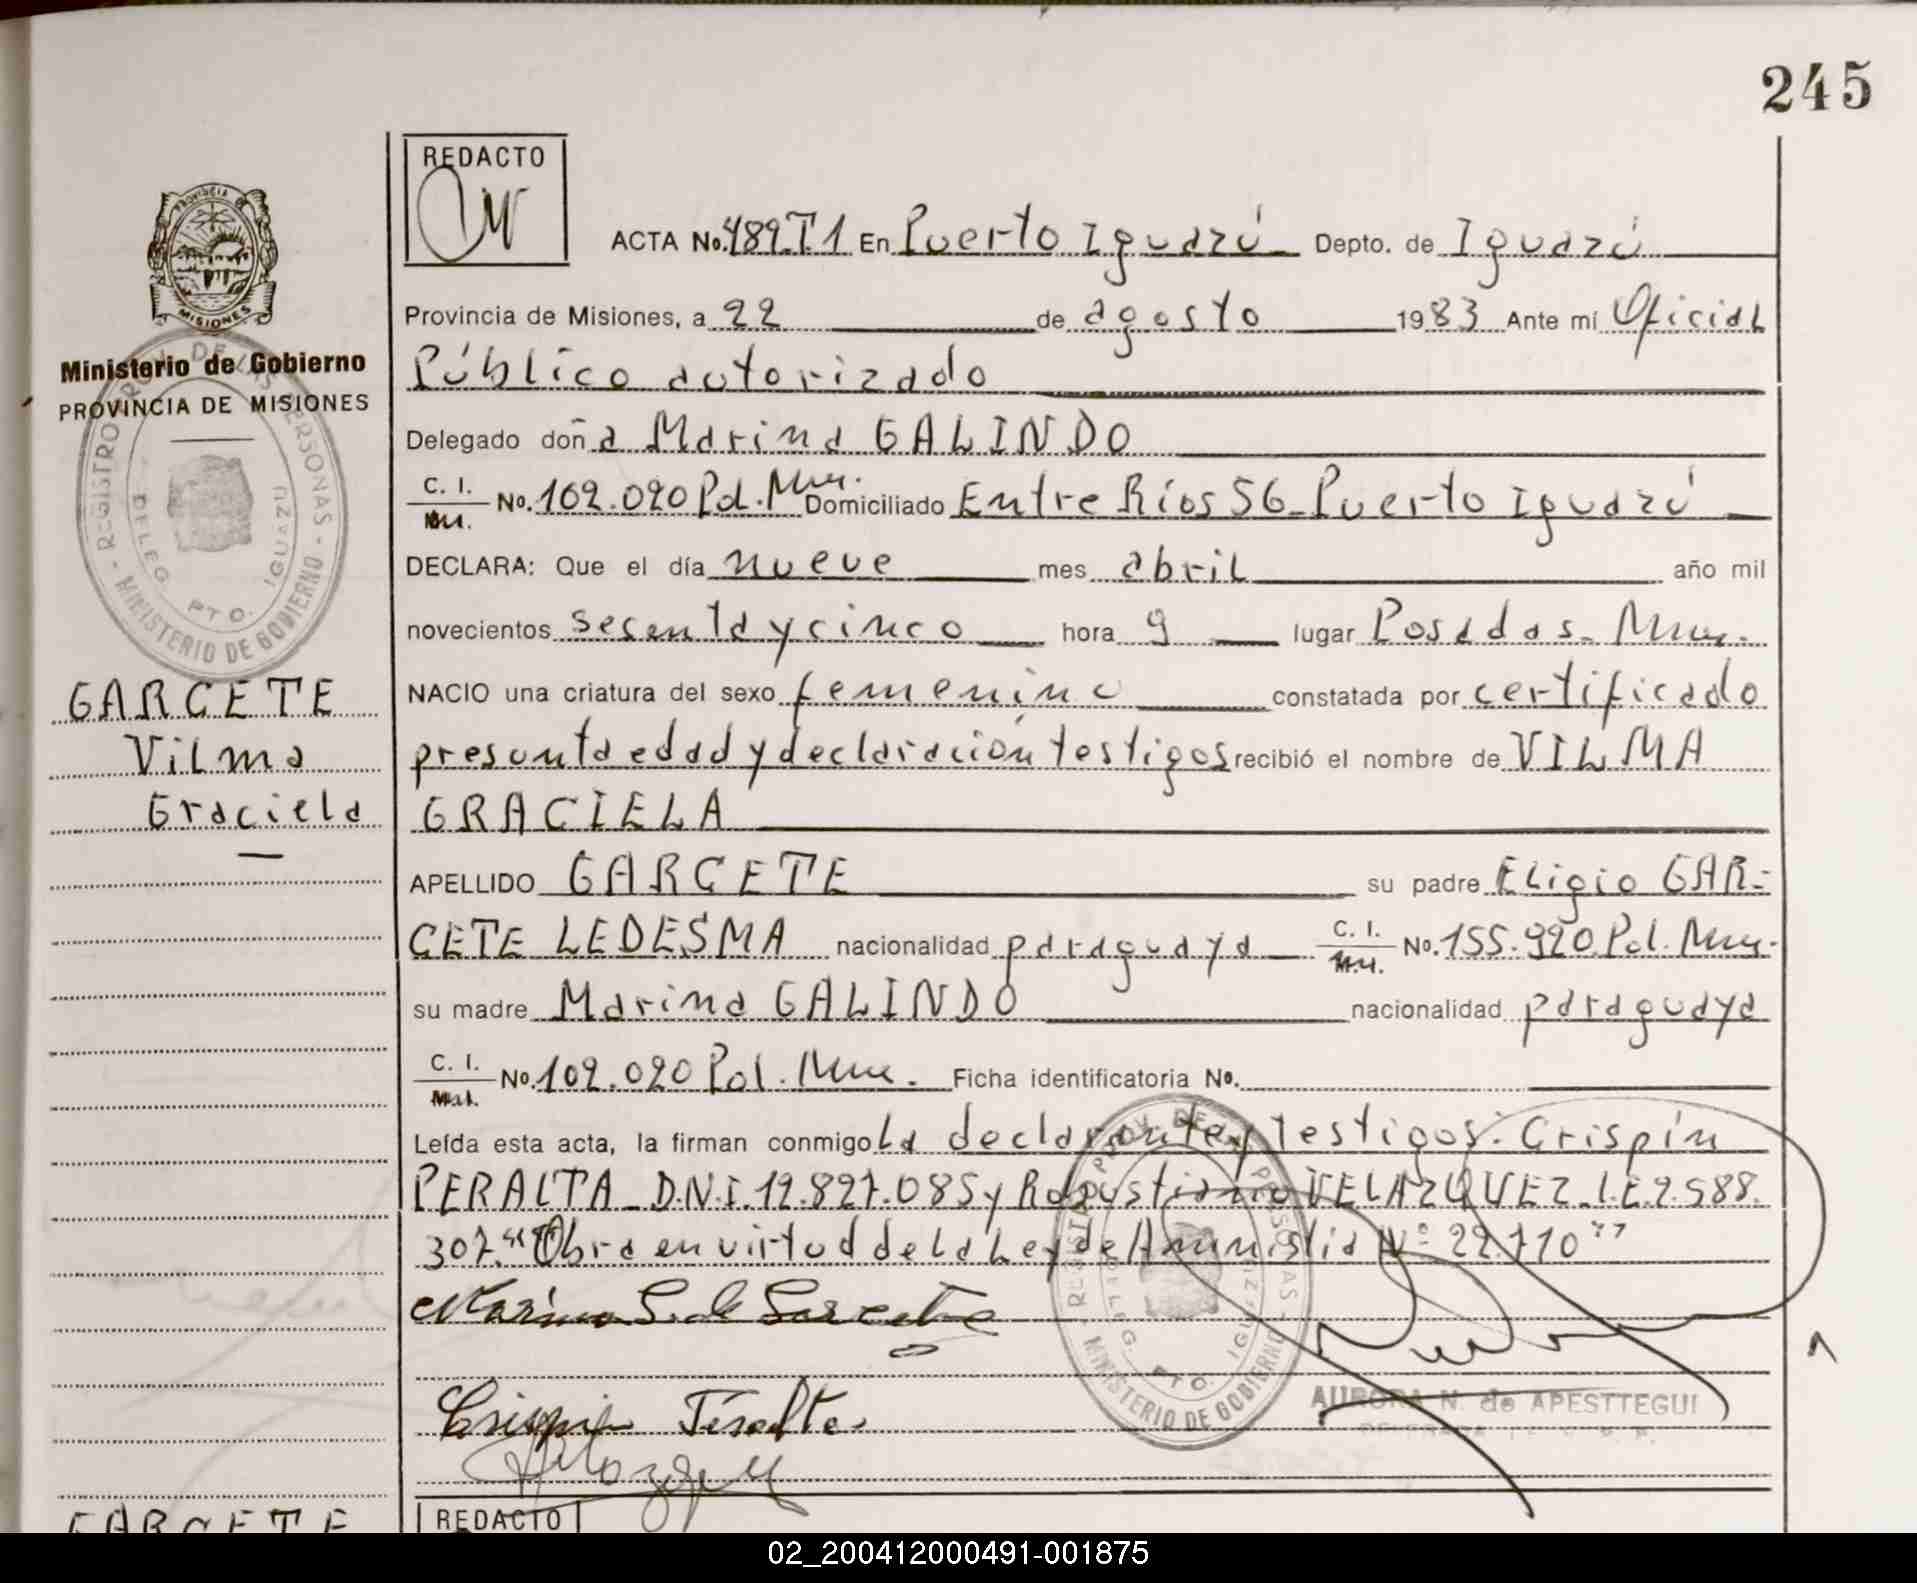 245
REDACTO
ACTA No. 489.T1 En Puerto Iguazú Depto. de Iguazú
Provincia de Misiones, a 22 de agosto 1983 Ante mí Oficial
Público autorizado
Delegado doña Marina GALINDO
C. I. No. 102.020 Pol. Mnes. Domiciliado Entre Ríos 56_Puerto Iguazú
DECLARA: Que el día nueve mes abril año mil
novecientos sesenta y cinco hora 9 lugar Posadas_Mnes.
NACIO una criatura del sexo femenino constatada por certificado
presunta edad y declaración testigos recibió el nombre de VILMA
GRACIELA
APELLIDO GARCETE su padre Eligio GAR-
CETE LEDESMA nacionalidad paraguaya C. I. No. 155.920 Pol. Mnes.
su madre Marina GALINDO nacionalidad paraguaya
C. I. No. 102.020 Pol. Mnes. Ficha identificatoria No.
Leída esta acta, la firman conmigo la declarante y testigos: Crispín
PERALTA_D.N.I. 12.827.085 y Robustiano VELAZQUEZ_L.E. 7.588.
307. "Obra en virtud de la Ley de Amnistia Nº 22.710"
Marina G. de Garcete
Crispin Peralta
AURORA N. de APESTTEGUI
REDACTO
PROVINCIA DE
MISIONES
Ministerio de Gobierno
PROVINCIA DE MISIONES
REGISTRO PROV. DE LAS PERSONAS - MINISTERIO DE GOBIERNO -
DELEG. PTO. IGUAZU
GARCETE
Vilma
Graciela
GARCETE
REGISTRO PROV. DE LAS PERSONAS - MINISTERIO DE GOBIERNO
DELEG. PTO. IGUAZU
02_200412000491-001875